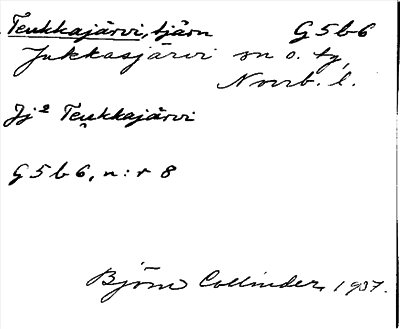 Teukkajärvi, tjärn G5b6
Jukkasjärvi sn o. tg,
Norrb. l.
Jj² Teu̯kkajärvi
G5b6, n:r 8
Björn Collinder, 1937.